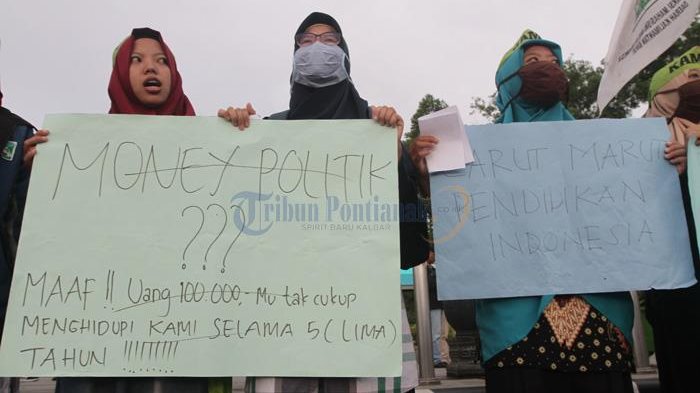 MONEY POLITIK
???
MAAF!! Uang 100.000,- Mu tak cukup
MENGHIDUPI KAMI SELAMA 5 (LIMA)
TAHUN !!!!!!!!!
CARUT MARUT
PENDIDIKAN
INDONESIA
Tribun Pontianak.co.id
SPIRIT BARU KALBAR
KAM